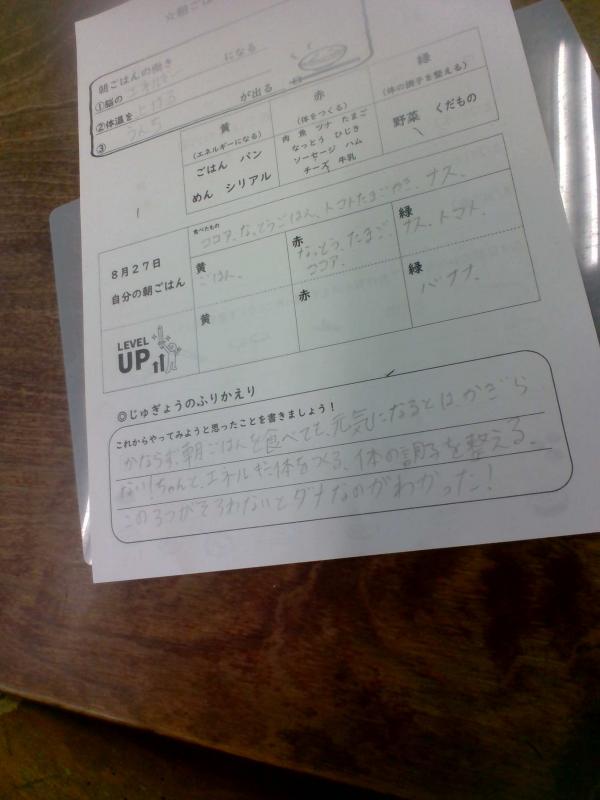 ☆朝ごは
朝ごはんの働き
①脳の エネルギー になる
②体温を 上げる
③ うんち が出る
黄
(エネルギーになる)
ごはん パン
めん シリアル
赤
(体をつくる)
肉 魚 ツナ たまご
なっとう ひじき
ソーセージ ハム
チーズ 牛乳
緑
(体の調子を整える)
野菜 くだもの
8月27日
自分の朝ごはん
食べたもの
ココア、なっとうごはん、トマトたまご、ナス、
黄
ごはん、
赤
なっとう、たまご
ココア、
緑
ナス、トマト、
LEVEL
UP
黄
赤
緑
バナナ
◎じゅぎょうのふりかえり
これからやってみようと思ったことを書きましょう！
かならず、朝ごはんを食べても、元気になるとはかぎら
ない！ちゃんと、エネルギー、体をつくる、体の調子を整える、
この3つがそろわないとダメなのがわかった！